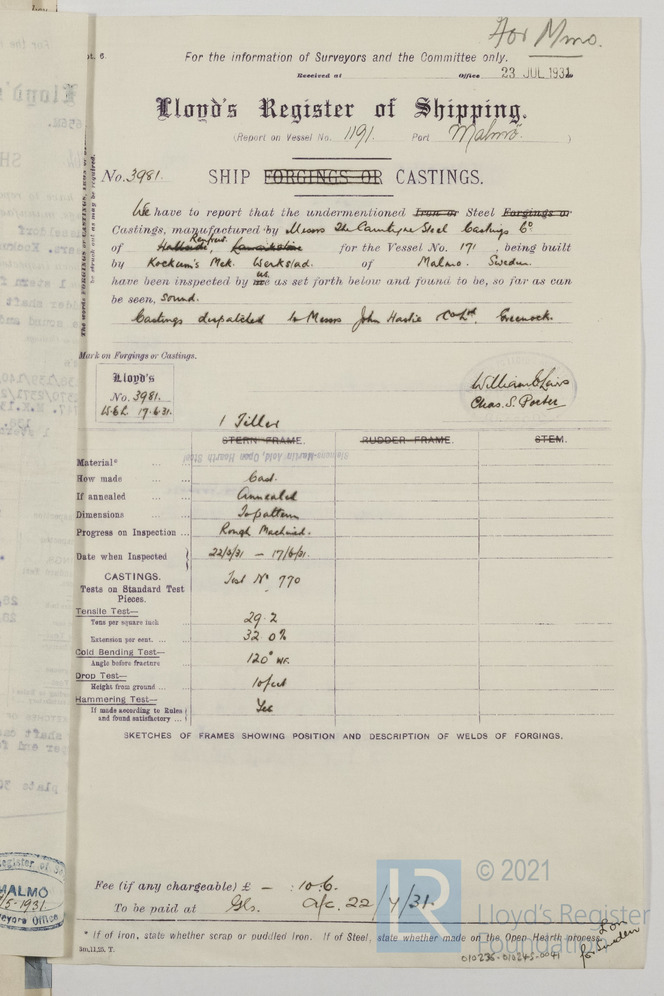 For Mmo.
For the information of Surveyors and the Committee only.
Received at Office 23 JUL 1931
Lloyd's Register of Shipping.
(Report on Vessel No. 1191. Port Malmö.)
No. 3981. SHIP FORGINGS OR CASTINGS.
We have to report that the undermentioned Iron or Steel Forgings or
Castings, manufactured by Messrs The Steel Castings Co
Renfrew.
of Lanarkshire for the Vessel No. 171, being built
by Kockum's Mek. Werkstad. of Malmo. Sweden.
have been inspected by me us. as set forth below and found to be, so far as can
be seen, sound.
Castings despatched to Messrs John Hastie & Co Ltd, Greenock.
Mark on Forgings or Castings.
Lloyd's
No. 3981.
17.6.31.
Chas. S. Porter
1 Tiller
STERN FRAME. RUDDER FRAME. STEM.
Material* Siemens-Martin Acid, Open Hearth Steel
How made Cast.
If annealed Annealed
Dimensions To pattern
Progress on Inspection Rough Machined.
Date when Inspected 22/5/31 - 17/6/31.
CASTINGS. Test No. 770
Tests on Standard Test
Pieces.
Tensile Test—
Tons per square inch 29.2
Extension per cent. 32.0%
Cold Bending Test—
Angle before fracture 120°
Drop Test—
Height from ground 10 feet
Hammering Test—
If made according to Rules Yes
and found satisfactory
SKETCHES OF FRAMES SHOWING POSITION AND DESCRIPTION OF WELDS OF FORGINGS.
Fee (if any chargeable) £ - : 10 : 6.
To be paid at Gls. a/c. 22/7/31.
* If of Iron, state whether scrap or puddled Iron. If of Steel, state whether made on the Open Hearth process.
010236-010245-0041
for Sweden
LR
© 2021
Lloyd's Register
Foundation
MALMO